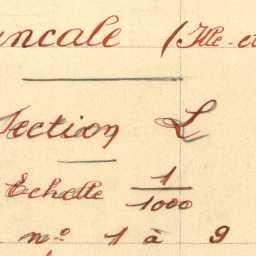 ncale (Ille-et
Section L
Echelle 1/1000
nos 1 à 9